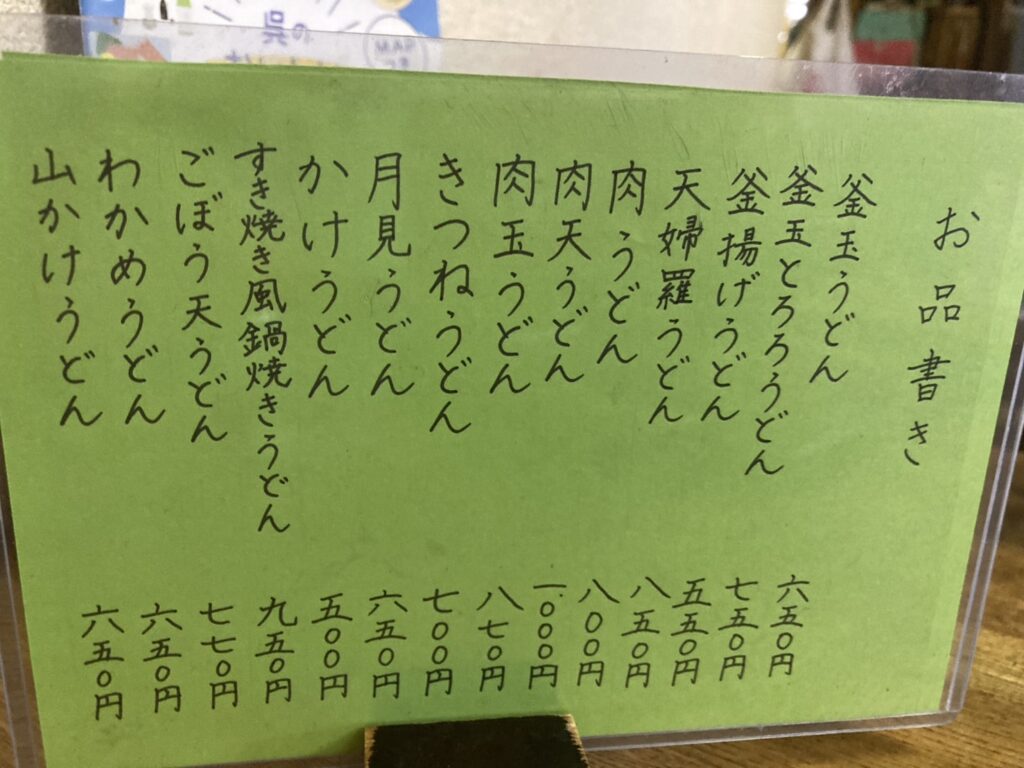 呉の
MAP
お品書き
釜玉うどん 六五〇円
釜玉とろろうどん 七五〇円
釜揚げうどん 五五〇円
天婦羅うどん 八五〇円
肉うどん 八〇〇円
肉天うどん 一〇〇〇円
肉玉うどん 八七〇円
きつねうどん 七〇〇円
月見うどん 六五〇円
かけうどん 五〇〇円
すき焼き風鍋焼きうどん 九五〇円
ごぼう天うどん 七七〇円
わかめうどん 六五〇円
山かけうどん 六五〇円